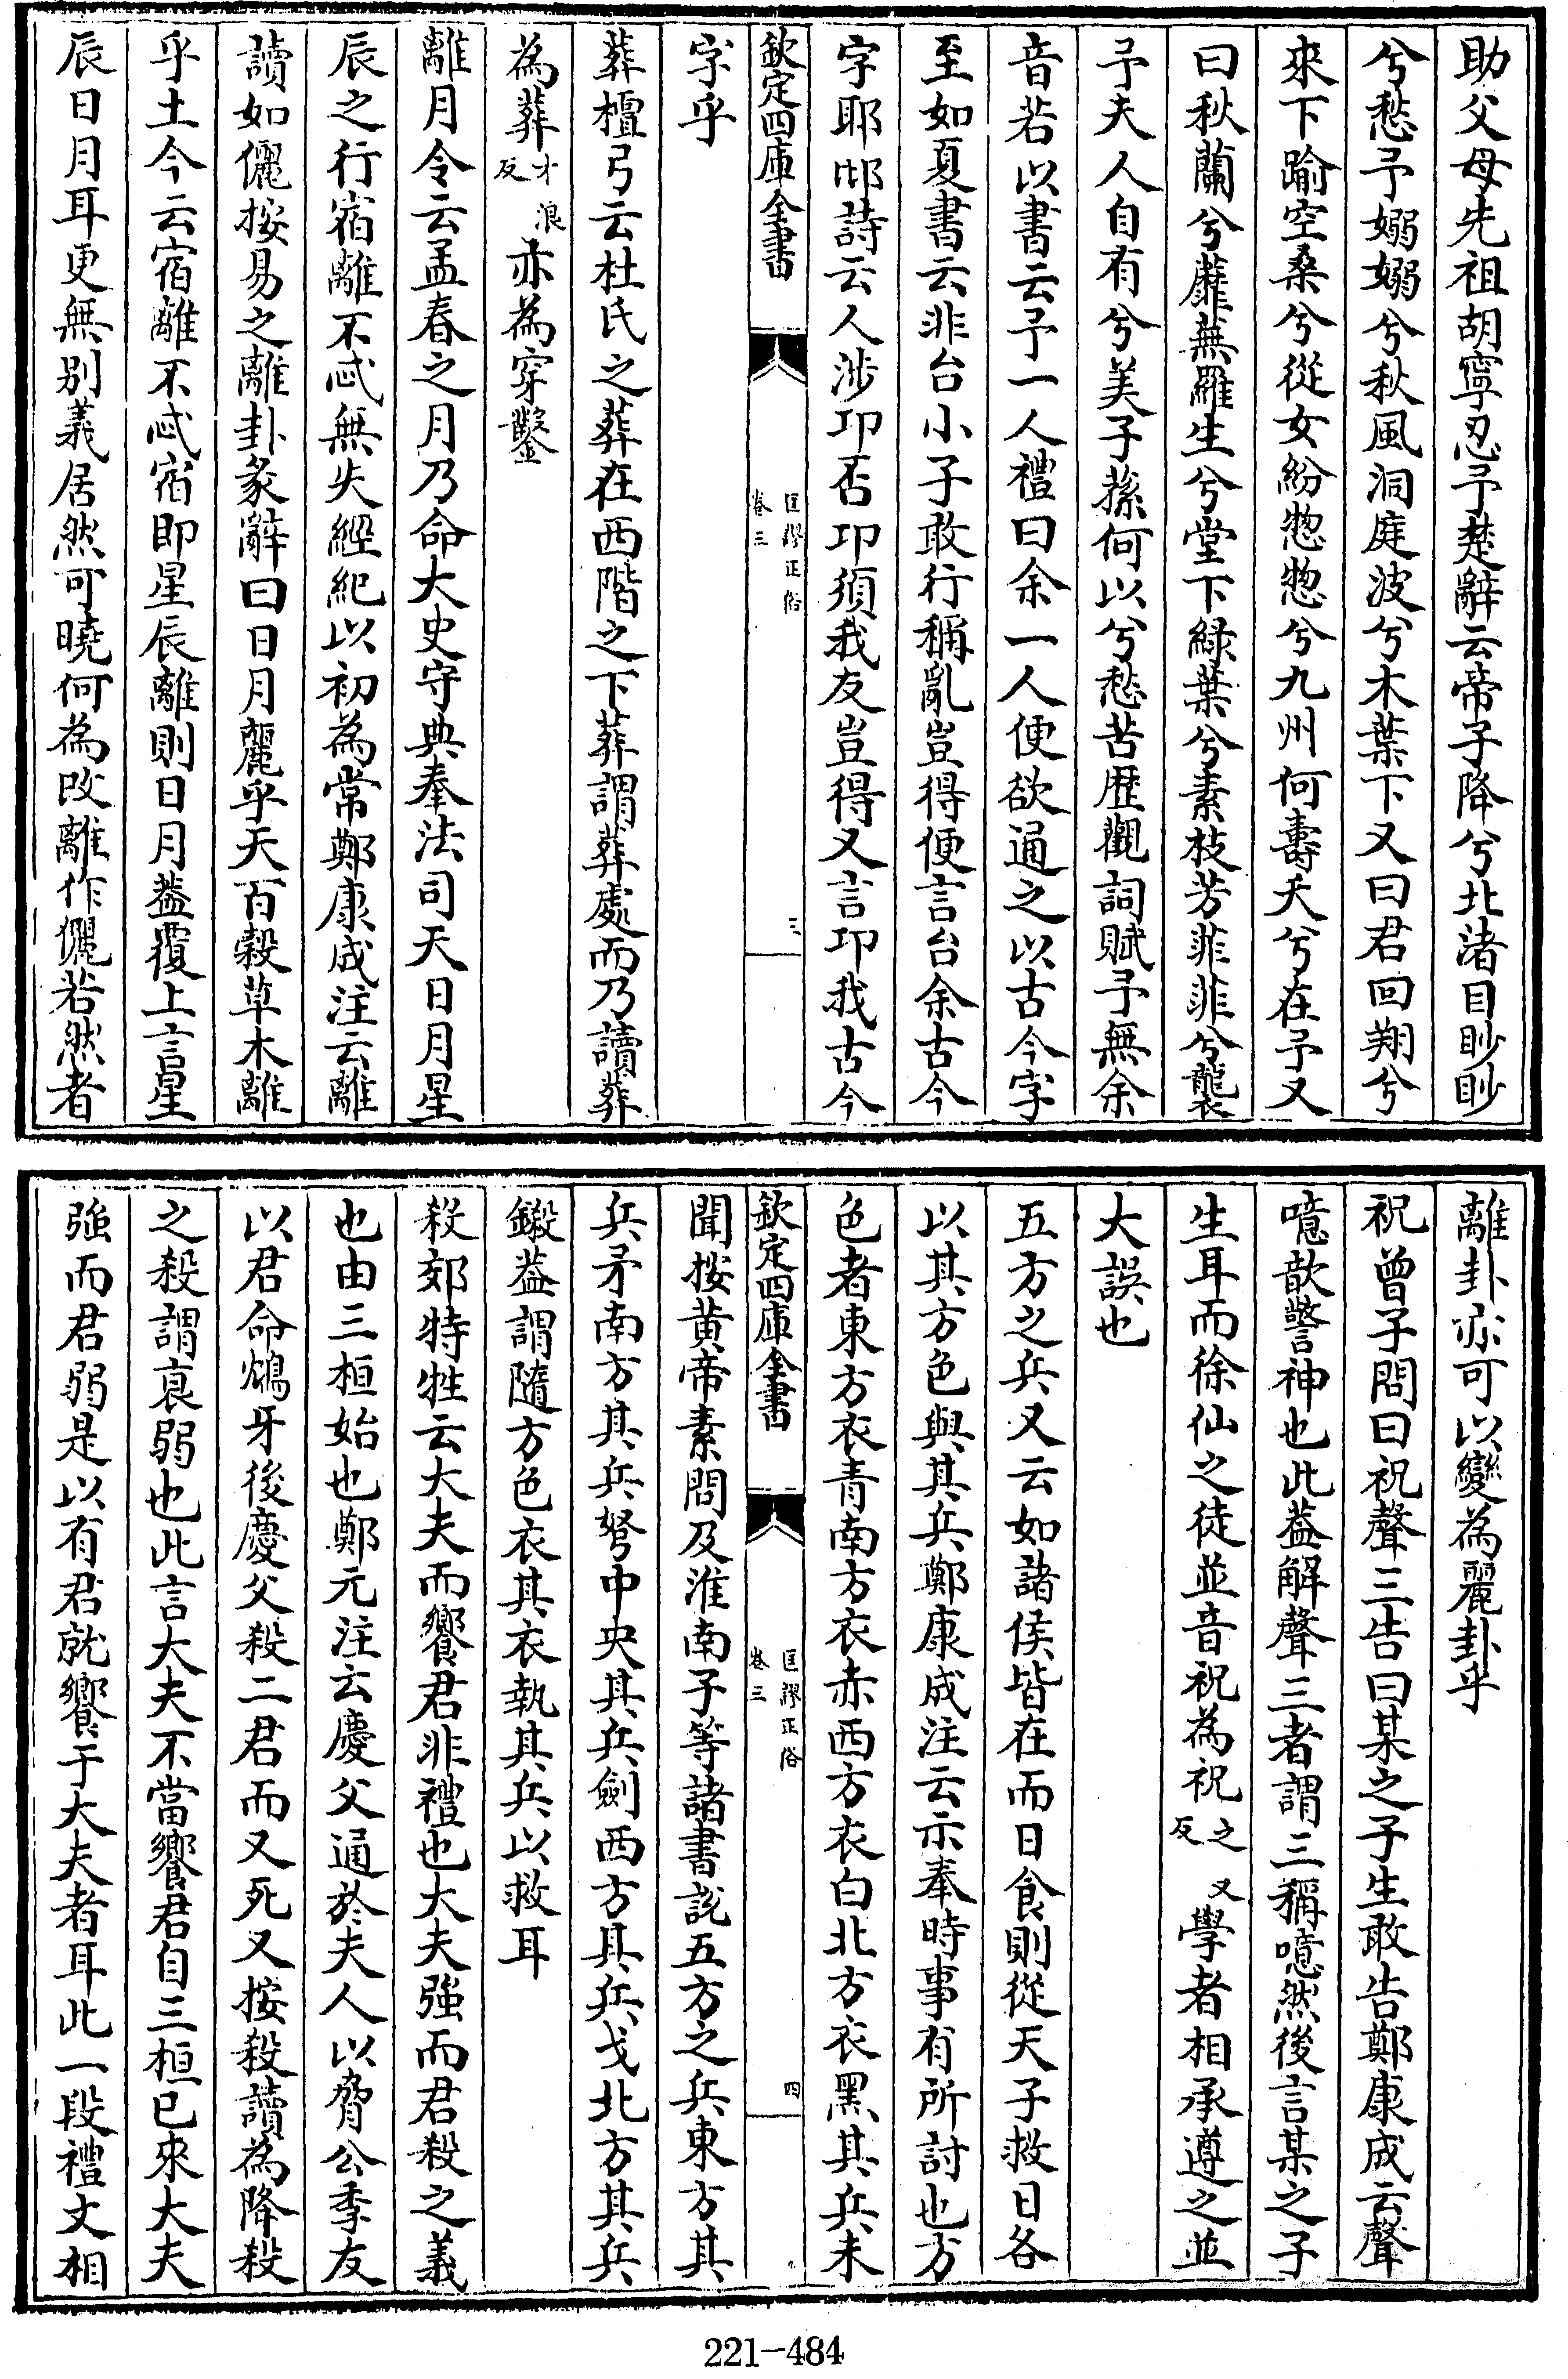 助父母先祖胡寧忍予楚辭云帝子降兮北渚目眇眇
兮愁予嫋嫋兮秋風洞庭波兮木葉下又曰君回翔兮
來下踰空桑兮從女紛惣惣兮九州何壽夭兮在予又
曰秋蘭兮蘼蕪羅生兮堂下綠葉兮素枝芳菲菲兮襲
予夫人自有兮美子蓀何以兮愁苦歴觀詞賦予無余
音若以書云予一人禮曰余一人便欲通之以古今字
至如夏書云非台小子敢行稱亂豈得便言台余古今
字耶邶詩云人涉卬否卬須我友豈得又言卬我古今
欽定四庫全書
匡謬正俗
卷三
三
字乎
葬檀弓云杜氏之葬在西階之下葬謂葬處而乃讀葬
為葬才浪反亦為穿鑿
離月令云孟春之月乃命大史守典奉法司天日月星
辰之行宿離不忒無失經紀以初為常鄭康成注云離
讀如儷按易之離卦彖辭曰日月麗乎天百穀草木離
乎土今云宿離不忒宿即星辰離則日月葢覆上言星
辰日月耳更無別義居然可曉何為改離作儷若然者
離卦亦可以變為麗卦乎
祝曾子問曰祝聲三告曰某之子生敢告鄭康成云聲
噫歆警神也此葢解聲三者謂三稱噫然後言某之子
生耳而徐仙之徒並音祝為祝之又反學者相承遵之並
大誤也
五方之兵又云如諸侯皆在而日食則從天子救日各
以其方色與其兵鄭康成注云示奉時事有所討也方
色者東方衣青南方衣赤西方衣白北方衣黑其兵未
欽定四庫全書
匡謬正俗
卷三
四
聞按黄帝素問及淮南子等諸書說五方之兵東方其
兵矛南方其兵弩中央其兵劍西方其兵戈北方其兵
鍛葢謂隨方色衣其衣執其兵以救耳
殺郊特牲云大夫而饗君非禮也大夫強而君殺之義
也由三桓始也鄭元注云慶父通於夫人以脅公季友
以君命鴆牙後慶父殺二君而又死又按殺讀為降殺
之殺謂衰弱也此言大夫不當饗君自三桓已來大夫
強而君弱是以有君就饗于大夫者耳此一段禮文相
221-484